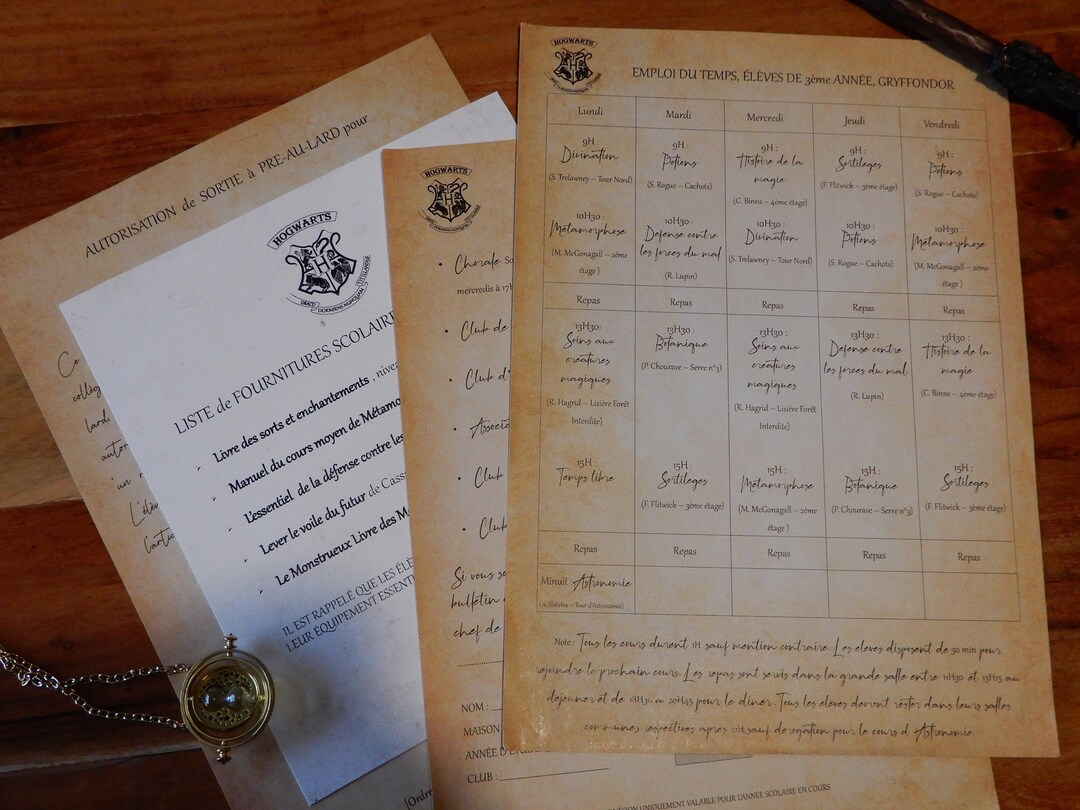 AUTORISATION de SORTIE à PRE-AU-LARD pour
Co
collèg
lard
autor
un
L'élèv
HOGWARTS
DRACO DORMIENS NUNQUAM TITILLANDUS
LISTE de FOURNITURES SCOLAIRE
Livre des sorts et enchantements , nive
Manuel du cours moyen de Métamo
L'essentiel de la défense contre les
Lever le voile du futur de Cass
Le Monstrueux Livre des M
IL EST RAPPELÉ QUE LES ÉLÈ
LEUR ÉQUIPEMENT ESSENTI
HOGWARTS
• Chorale So
mercredis à 17h
• Club de
• Club d'
• Associ
• Club
• Club
Si vous so
bulletin
chef de
NOM :
MAISON
ANNÉE D'ÉTUDE
CLUB :
[Ordre
UNIQUEMENT VALABLE POUR L'ANNÉE SCOLAIRE EN COURS
HOGWARTS
EMPLOI DU TEMPS, ÉLÈVES DE 3ème ANNÉE, GRYFFONDOR
Lundi Mardi Mercredi Jeudi Vendredi
9H : 9H : 9H : 9H : 9H :
Divination Potions Histoire de la magie Sortileges Potions
(S. Trelawney – Tour Nord) (S. Rogue – Cachots) (C. Binns – 4ème étage) (F. Flitwick – 3ème étage) (S. Rogue – Cachots)
10H30 : 10H30 : 10H30 : 10H30 : 10H30 :
Métamorphose Defense contre les forces du mal Divination Potions Métamorphose
(M. McGonagall – 2ème étage ) (R. Lupin) (S. Trelawney – Tour Nord) (S. Rogue – Cachots) (M. McGonagall – 2ème étage )
Repas Repas Repas Repas Repas
13H30: 13H30 : 13H30 : 13H30 : 13H30 :
Soins aux créatures magiques Botanique Soins aux créatures magiques Defense contre les forces du mal Histoire de la magie
(R. Hagrid – Lisière Forêt Interdite) (P. Chourave – Serre n°3) (R. Hagrid – Lisière Forêt Interdite) (R. Lupin) (C. Binns – 4ème étage)
15H : 15H : 15H : 15H : 15H :
Temps libre Sortileges Métamorphose Botanique Sortileges
(F. Flitwick – 3ème étage) (M. McGonagall – 2ème étage ) (P. Chourave – Serre n°3) (F. Flitwick – 3ème étage)
Repas Repas Repas Repas Repas
Minuit : Astronomie
(A. Sinistra – Tour d'Astronomie)
Note : Tous les cours durent 1H sauf mention contraire. Les eleves disposent de 30 min pour
rejoindre le prochain cours. Les repas sont servis dans la grande salle entre 11H30 et 13H15 au
dejeuner et de 18H30 a 20H45 pour le diner. Tous les eleves devront rester dans leurs salles
communes respectives apres sauf derogation pour le cours d'Astronomie.